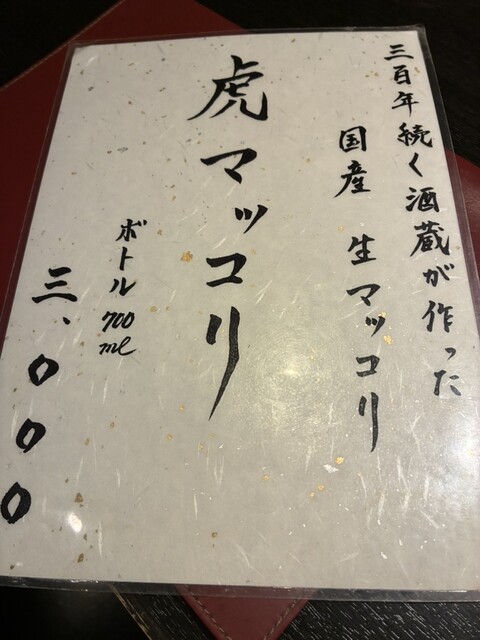 三百年続く酒蔵が作った
国産 生マッコリ
虎マッコリ
ボトル700ml
三、000